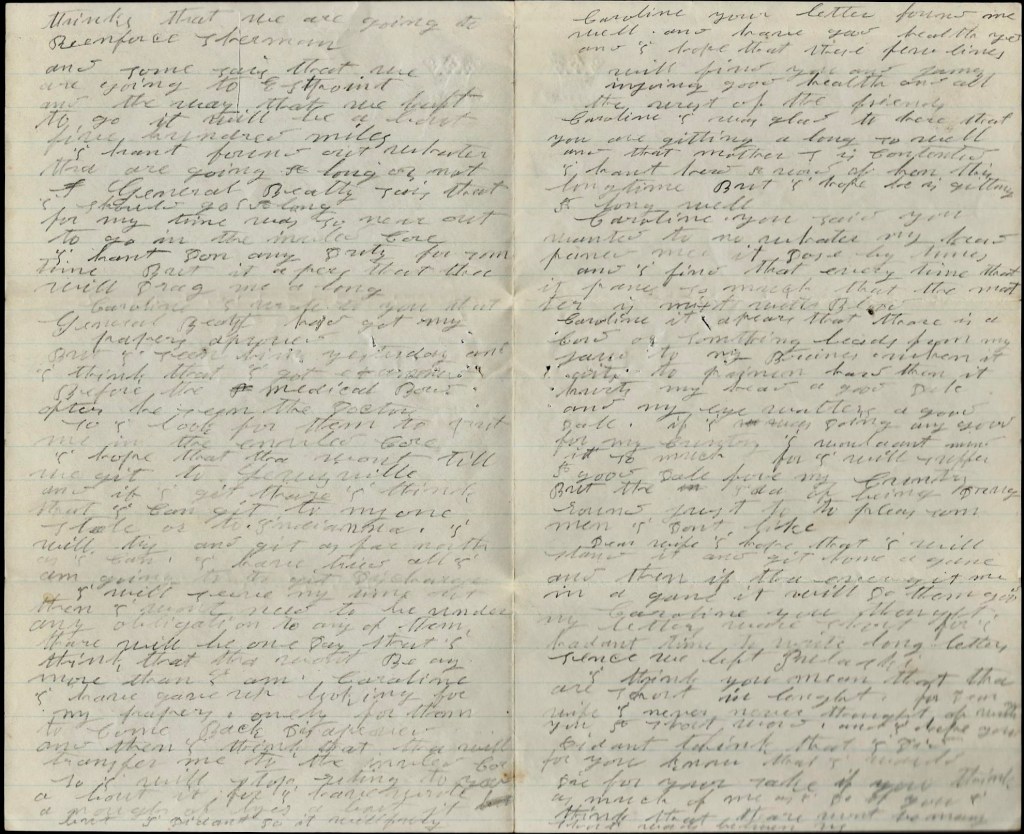 thinks that we are going to
Reenforce Sherman
and some says that we
are going to Eastpoint
and the way that we haft
to go it will be a bout
five hundred miles
I hant found out wheater
tha are going a long or not
General Beatty says that
I should go a long
for my time was so near out
to go in the invlid Core
I hant Don any Duty for som
time But it apers that tha
will Drag me a long
Caroline I wrote to you that
General Beatty had got my
papers aprived
But I seen him yesterday and
I think that I got
Before the medical Bord
after he seen the Docter
so I look for them to put
me in the envled Core
I hope that tha wont till
we git to Louisville
and if I git thare I think
that I can git to my one
State or to Indianna. I
will try and git as far north
as I can. I have hered all I
am going to to git Discharge
I will serve my time out
then I wont need to be under
any obligation to any of them
thare will be one Day that I
think that tha wont Be any
more than I am. Caroline
I have gave up looking for
my papers onely for them
to Come Back Disaproved
and then I think that tha will
transfer me to the envled Cor
so I will stop riting to you
a bout it for I have wrote
a nough a bout it
but I Dident

Caroline your letter found me
well. and have good health yet
and I hope that these few lines
will find you and famy
injoying good health and all
the rest of the friends
Caroline I was glad to here that
you are gitting a long so well
and that mother is Contented
I hant hered a word of hon this
longtime But I hope he is gitting
a long well
Caroline you said you
wanted to no wheater my head
paned me it Dose by times
and I find that every time that
it pane so much that the mat
ter is mixt with Blood
Caroline it apears that thare is a
Cord or something leads from my
jaws to my Braines when it
gits to painen hard then it
hurts my head a good Dele
and my eye watters a good
Dale. if I was Doing any good
for my Cuntry I wouldant mind
it so much for I will suffer
a good Dale fore my Cuntry
But the idea of being Drug
Round just to to pleas som
men I Dont like
Dear wife I hope that I will
stand it and git home a gane
and then if tha ever git me
in a gane it will Do them good
my Caroline you thought
my letters ware short for I
hadant time to write long letters
sence we left Pulaski
I think you mean that tha
are short in lenght for Dear
wife I never never thought of
you so that
Didant think that I Did
for you know that I would
Die for your sake if you think
as much of me as I do of you I
think that thare wont be many
hard words between us